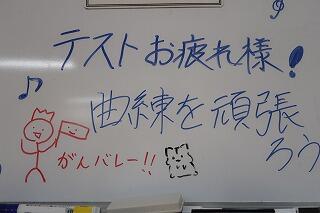 テストお疲れ様!
曲練を頑張
ろう
がんバレー!!